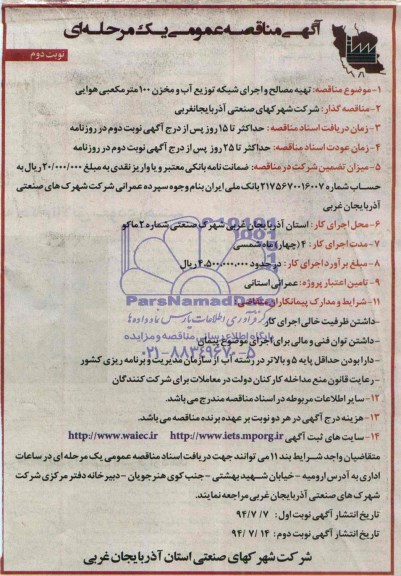 آگهی مناقصه عمومی یک مرحله ای
نوبت دوم
۱- موضوع مناقصه: تهیه مصالح و اجرای شبکه توزیع آب و مخزن ۱۰۰ متر مکعبی هوایی
۲- مناقصه گذار: شرکت شهرکهای صنعتی آذربایجانغربی
۳- زمان دریافت اسناد مناقصه: حداکثر تا ۱۵ روز پس از درج آگهی نوبت دوم در روزنامه
۴- زمان عودت اسناد مناقصه: حداکثر تا ۲۵ روز پس از درج آگهی نوبت دوم در روزنامه
۵- میزان تضمین شرکت در مناقصه: ضمانت نامه بانکی معتبر و یا واریز نقدی به مبلغ ۲۰/۰۰۰/۰۰۰ ریال به
حساب شماره ۲۱۷۵۶۷۰۰۱۶۰۰۷ بانک ملی ایران بنام وجوه سپرده عمرانی شرکت شهرک های صنعتی
آذربایجان غربی
۶- محل اجرای کار: استان آذربایجان غربی شهرک صنعتی شماره ۲ ماکو
۷- مدت اجرای کار: ۴ (چهار) ماه شمسی
۸- مبلغ برآورد اجرای کار: در حدود ۴،۵۰۰،۰۰۰،۰۰۰ ریال
۹- تامین اعتبار پروژه: عمرانی استانی
ParsNamadData
۱۱- شرایط و مدارک پیمانکاران متقاضی
-داشتن ظرفیت خالی اجرای کار
پایگاه اطلاع رسانی مناقصه و مزایده
-داشتن توان فنی و مالی برای اجرای موضوع پیمان
۰۲۱-۸۸۳۴۹۶۷۰-۵
-دارا بودن حداقل پایه ۵ و بالاتر در رشته آب از سازمان مدیریت و برنامه ریزی کشور
-رعایت قانون منع مداخله کارکنان دولت در معاملات برای شرکت کنندگان
۱۲- سایر اطلاعات مربوطه در اسناد مناقصه مندرج می باشد.
۱۳- هزینه درج آگهی در هر دو نوبت بر عهده برنده مناقصه می باشد.
۱۴- سایت های ثبت آگهی http://www.iets.mporg.ir http://www.waiec.ir
متقاضیان واجد شرایط بند ۱۱ می توانند جهت دریافت اسناد مناقصه عمومی یک مرحله ای در ساعات
اداری به آدرس ارومیه - خیابان شهید بهشتی - جنب کوی هنرجویان - دبیرخانه دفتر مرکزی شرکت
شهرک های صنعتی آذربایجان غربی مراجعه نمایند.
تاریخ انتشار آگهی نوبت اول: ۹۴/۷/۷
تاریخ انتشار آگهی نوبت دوم: ۹۴/۷/۱۴
شرکت شهرکهای صنعتی استان آذربایجان غربی